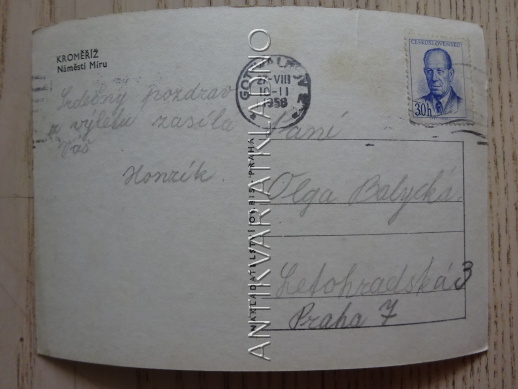 KROMĚŘÍŽ
Náměstí Míru
Srdečný pozdrav
z výletu zasílá
Váš
Honzík.
GOTTWALDOV 2
VIII
-11
1958
ČESKOSLOVENSKO
30h
Paní
Olga Balycká
Letohradská 3
Praha 7
NAKLADATELSTVÍ ORBIS PRAHA
ANTIKVARIATKLADNO